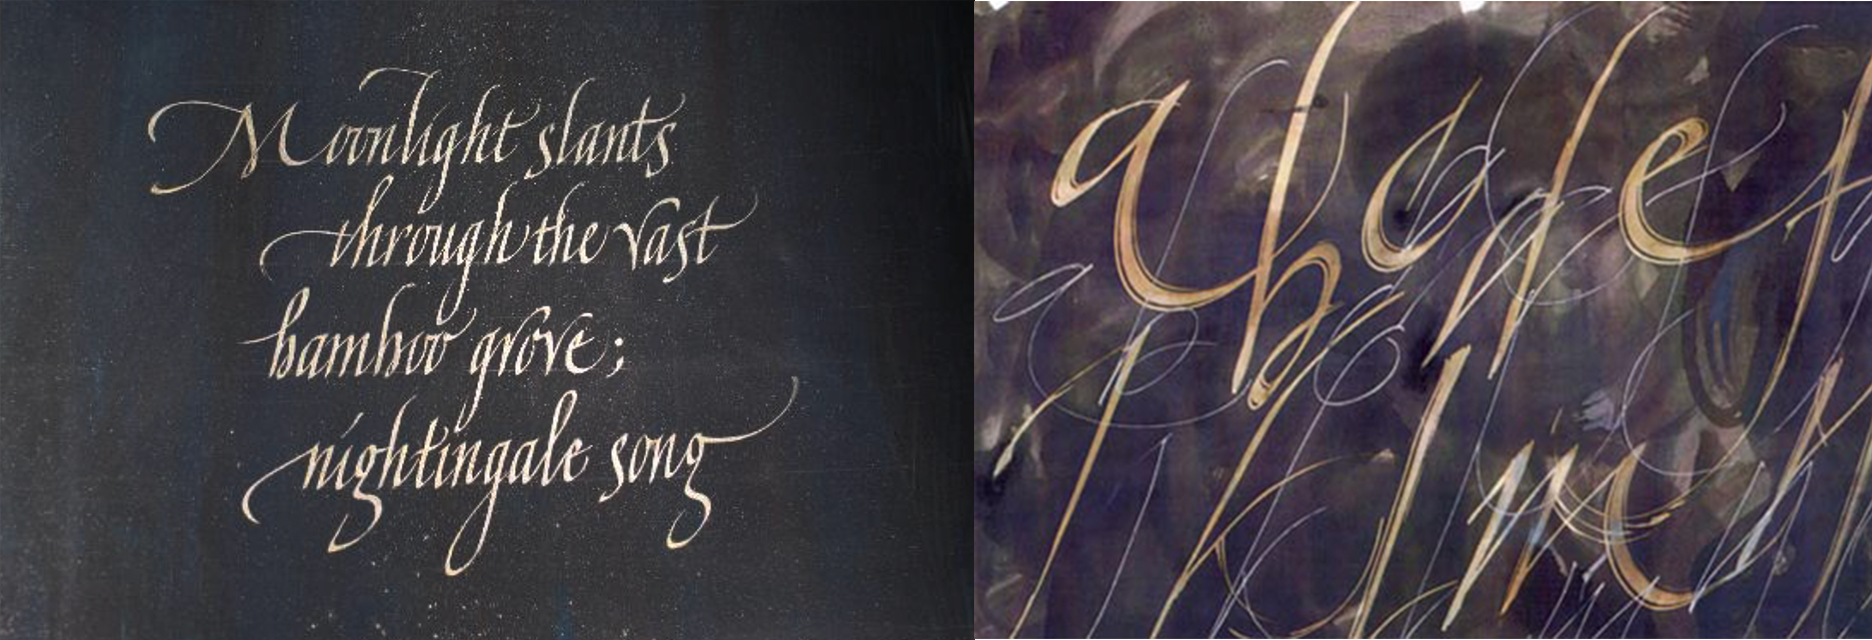 Moonlight slants
through the vast
bamboo grove;
nightingale song
a b c d e f